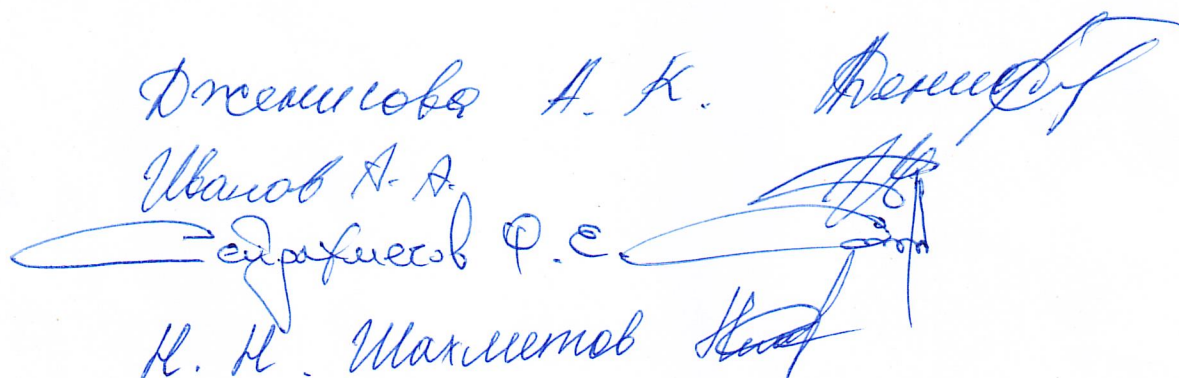 Дженисова А. К.
Иванов А. А.
Сейрахметов Ф. Е.
Н. Н. Шахметов